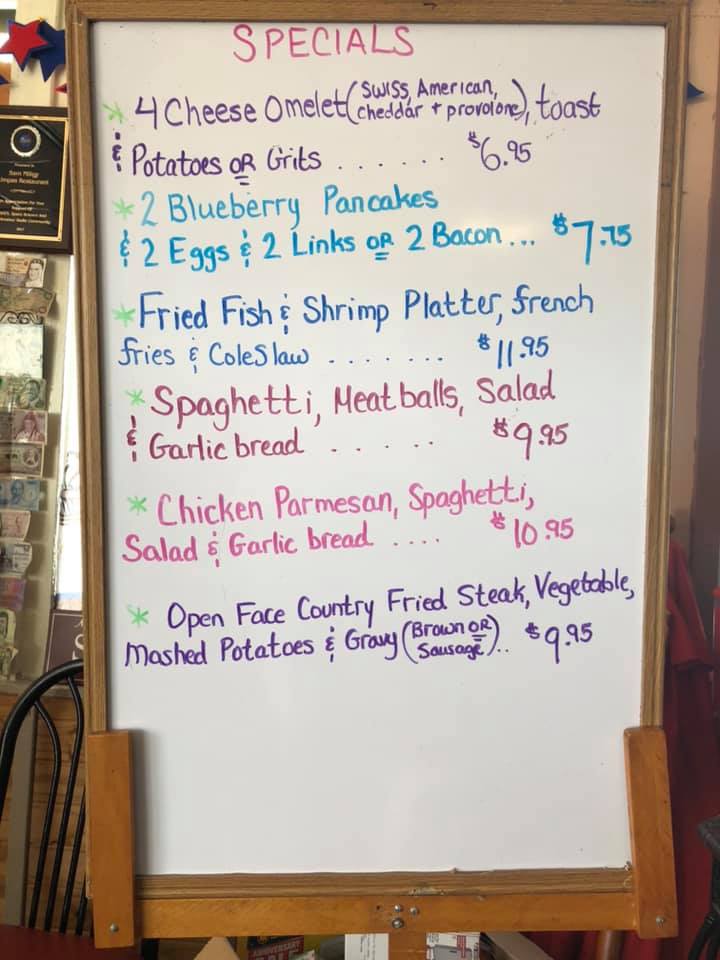 SPECIALS
* 4 Cheese Omelet (Swiss, American, cheddar + provolone), toast
& Potatoes OR Grits . . . . . . $6.95
* 2 Blueberry Pancakes
& 2 Eggs & 2 Links OR 2 Bacon... $7.75
* Fried Fish & Shrimp Platter, french
fries & Coleslaw . . . . . . . $11.95
* Spaghetti, Meatballs, Salad
& Garlic bread . . . . . $9.95
* Chicken Parmesan, Spaghetti,
Salad & Garlic bread .... $10.95
* Open Face Country Fried Steak, Vegetable,
Mashed Potatoes & Gravy (Brown OR Sausage).. $9.95
ANNIVERSARY